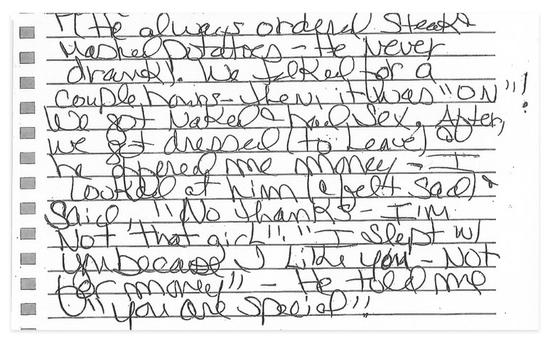 "(He always ordered Steak &
Mashed Potatoes - He Never
drank). We talked for a
couple hours - then, it was "ON"!
We got Naked & had Sex. After,
we got dressed (to Leave) &
he offered me money - I
Looked at him (& felt sad) &
Said, "No thanks - I'm
Not that girl". "I slept w/
you because I Like you - Not
for money" - He told me
"you are special".